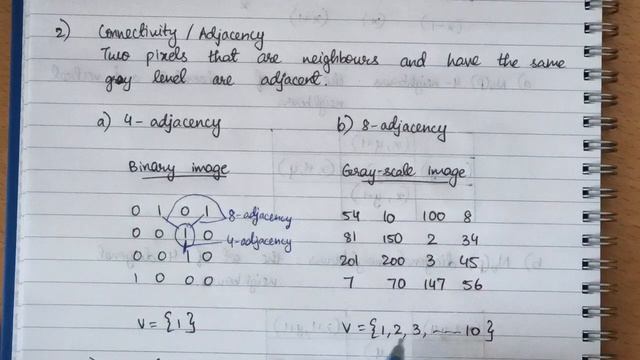 2) Connectivity / Adjacency
Two pixels that are neighbours and have the same
gray level are adjacent.
a) 4-adjacency b) 8-adjacency
Binary image Gray-scale image
0 1 0 1 8-adjacency 54 10 100 8
0 0 1 0 4-adjacency 81 150 2 34
0 0 1 0 201 200 3 45
1 0 0 0 7 70 147 56
V = {1} V = {1, 2, 3, --- 10}